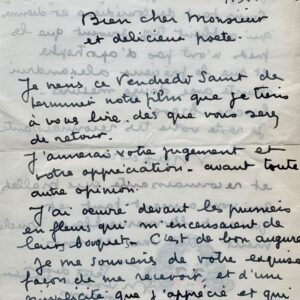 Bien cher Monsieur
et délicieux poète.
Je viens ce Vendredi Saint de
terminer notre film que je tiens
à vous lire. dès que vous serez
de retour.
J'aimerais votre jugement et
votre appréciation - avant toute
autre opinion.
J'ai œuvré devant les pruniers
en fleurs qui m'encensaient de
leurs bouquets. C'est de bon augure
Je me souviens de votre exquise
façon de me recevoir, et d'une
simplicité que j'apprécie et qui